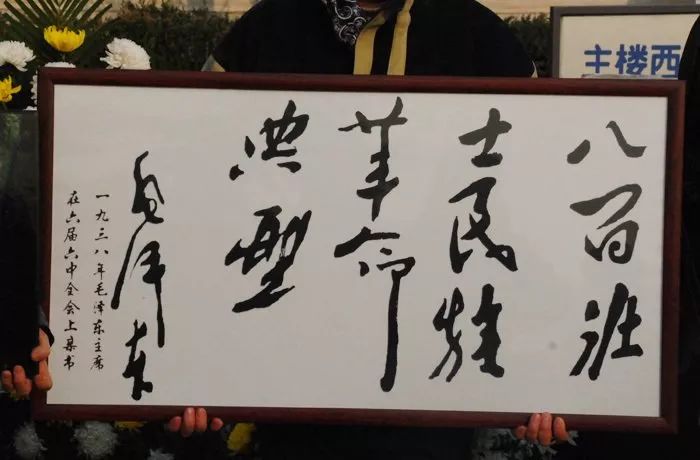 主楼西
八百壮
士民族
革命
典型
毛泽东
一九三八年毛泽东主席
在六届六中全会上某书